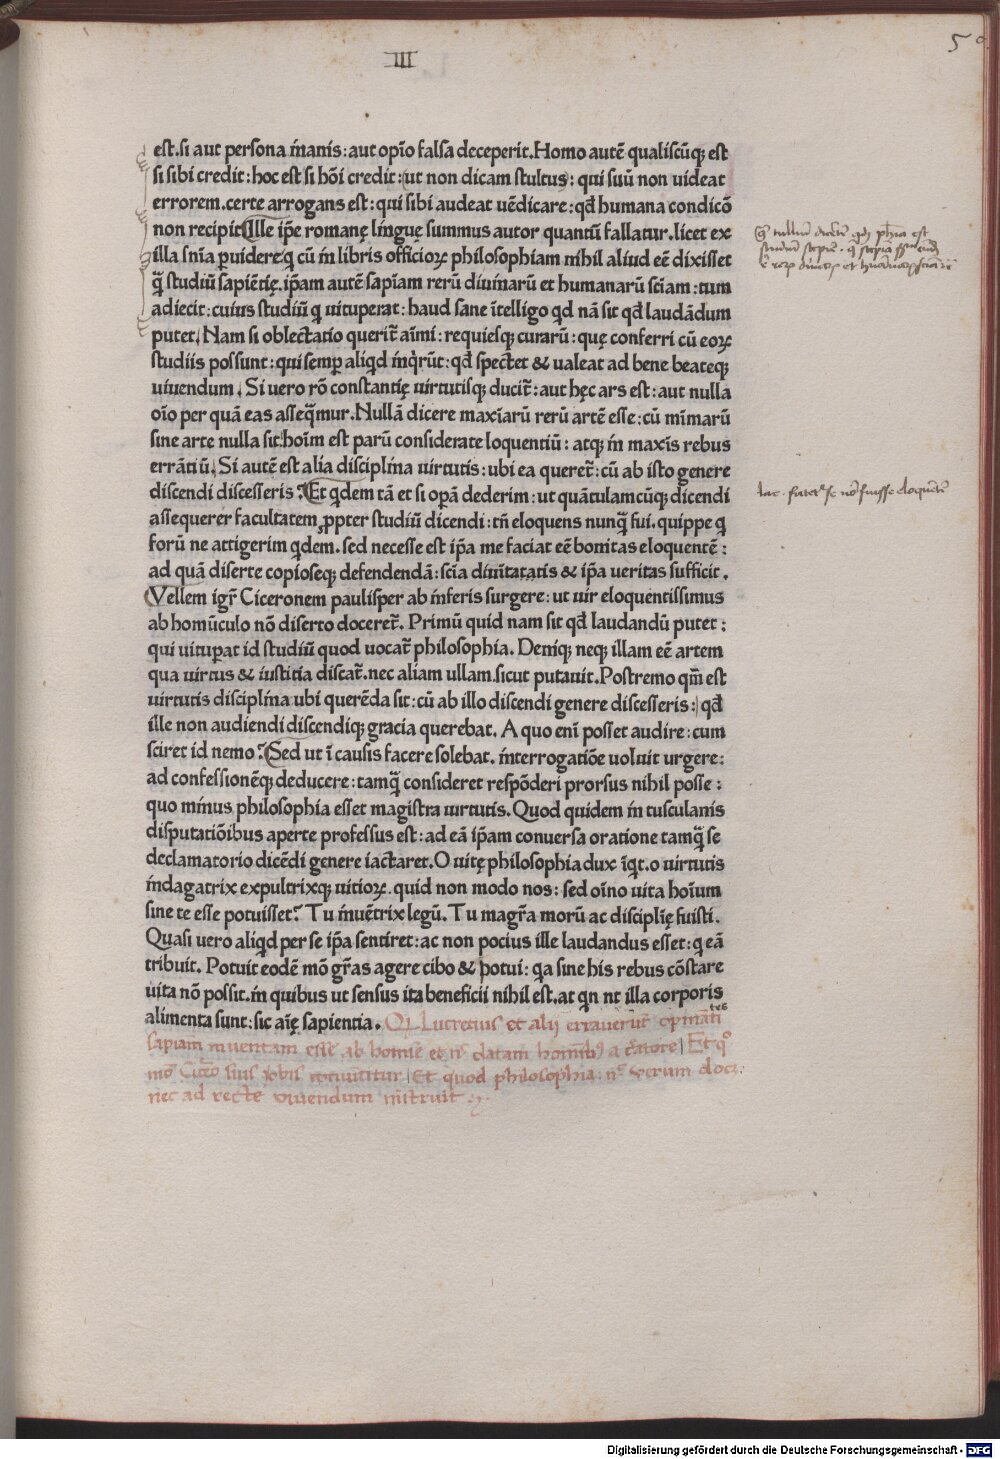 III
50
est.si aut persona īnanis:aut opīo falsa deceperit.Homo autē qualiscūq; est
si sibi credit:hoc est si hōi credit:(ut non dicam stultus): qui suū non uideat
errorem.certe arrogans est:qui sibi audeat uēdicare:qđ humana condicō
non recipit Ille ip̄e romanę linguę summus autor quantū fallatur.licet ex
illa sn̄ia ꝑuidere.q̄ cū in libris officioꝝ philosophiam nihil aliud eē dixisset
q̄ studiū sapiētię.ip̄am autē sapīam rerū diuinarū et humanarū sc̄iam:tum
adiecit:cuius studiū q̄ uituperat:haud sane ītelligo qđ nā sit qđ laudādum
putet.Nam si oblectatio querit̄ aīmi:requiesq; curarū:quę conferri cū eoꝝ
studiis possunt:qui semꝑ aliqđ inq̄rūt:qđ spectet & ualeat ad bene beateq;
uiuendum.Si uero rō constantię uirtutisq; ducit̄:aut hęc ars est:aut nulla
oīo per quā eas asseq̄mur.Nullā dicere maxīarū rerū artē esse:cū mīmarū
sine arte nulla sit:hoīm est parū considerate loquentiū:atq; in maxīs rebus
errātiū.Si autē est alia disciplina uirtutis:ubi ea queret̄:cū ab isto genere
discendi discesseris? Et q̄dem tā et si opā dederim:ut quātulamcūq; dicendi
assequerer facultatem ꝓpter studiū dicendi:tn̄ eloquens nunq̄ fui.quippe q̄
forū ne attigerim q̄dem.sed necesse est ip̄a me faciat eē bonitas eloquentē:
ad quā diserte copioseq; defendendā:sc̄ia diuītatatis & ip̄a ueritas sufficit.
Vellem igr̄ Ciceronem paulisper ab inferis surgere:ut uir eloquentissimus
ab homūculo nō diserto doceret̄.Primū quid nam sit qđ laudandū putet:
qui uituꝑat id studiū quod uocat̄ philosophia.Deniq; neq; illam eē artem
qua uirtus & iustitia discat̄.nec aliam ullam.sicut putauit.Postremo qm̄ est
uirtutis disciplina ubi querēda sit:cū ab illo discendi genere discesseris:qđ
ille non audiendi discendiq; gracia querebat.A quo eni posset audire:cum
sciret id nemo? Sed ut ī causis facere solebat.interrogatiōe uoluit urgere:
ad confessionēq; deducere:tamq̄ consideret respōderi prorsus nihil posse:
quo minus philosophia esset magistra uirtutis.Quod quidem in tusculanis
disputatiōibus aperte professus est:ad eā ip̄am conuersa oratione tamq̄ se
declamatorio dicēdi genere iactaret.O uitę philosophia dux īq̄t.o uirtutis
indagatrix expultrixq; uitioꝝ.quid non modo nos:sed oīno uita hoīum
sine te esse potuisset? Tu inuētrix legū.Tu magr̄a morū ac disciplīę fuisti.
Quasi uero aliqđ per se ip̄a sentiret:ac non pocius ille laudandus esset:q̄ eā
tribuit.Potuit eodē mō gr̄as agere cibo & potui:q̄a sine his rebus cōstare
uita nō possit.in quibus ut sensus ita beneficii nihil est.at q̄n nt illa corporis
alimenta sunt:sic aīę sapientia. Q Lucretius et alij errauerūt opinātes
sapīam inuentam esse ab homīe et nō datam hominibꝰ a creatore Et qͦ
mō Cicero suis verbis conuincitur Et quod philosophia nō verum docet
nec ad recte viuendum instruit
lac. fatetᷣ se nō fuisse eloquētē